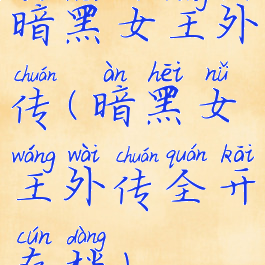 暗黑女王外
chuán àn hēi nǚ
传(暗黑女
wáng wài chuán quán kāi
王外传全开
cún dàng
存档)